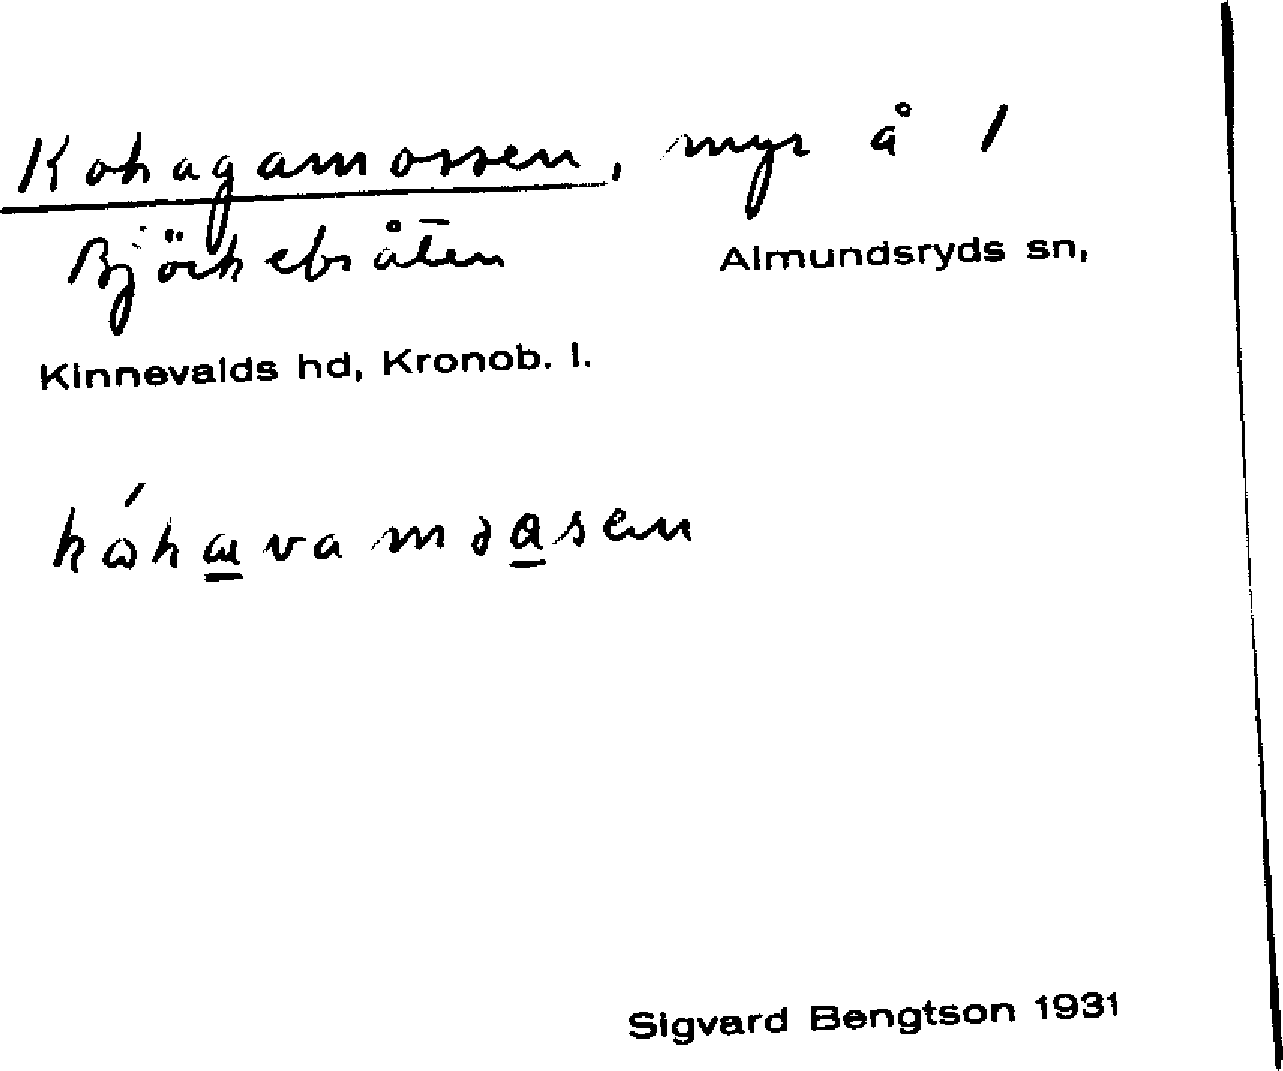 Kohagamossen, myr å 1
Björkebråten Almundsryds sn,
Kinnevalds hd, Kronob. l.
Sigvard Bengtson 1931